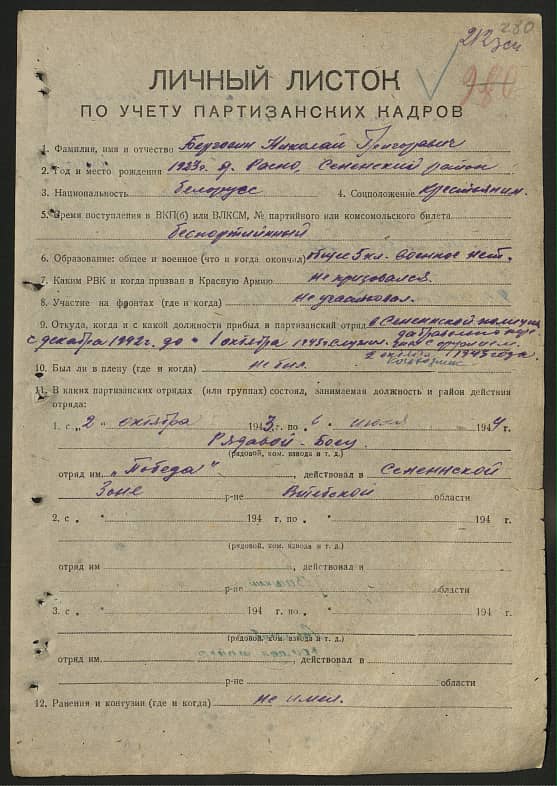 280
212
980
ЛИЧНЫЙ ЛИСТОК
ПО УЧЕТУ ПАРТИЗАНСКИХ КАДРОВ
1. Фамилия, имя и отчество Николай Григорьевич
2. Год и место рождения 1923 г. д. Сененский район
3. Национальность белорусс 4. Соцположение крестьянин.
5. Время поступления в ВКП(б) или ВЛКСМ, № партийного или комсомольского билета
беспортийный
6. Образование: общее и военное (что и когда окончил) общее 5 кл. Военное нет.
7. Каким РВК и когда призван в Красную Армию не призовался.
8. Участие на фронтах (где и когда) не участвовал.
9. Откуда, когда и с какой должности прибыл в партизанский отряд в Сененнской
с декабря 1942 г. до 1 октября 1943 с оружием.
2 октября 1943 года.
10. Был ли в плену (где и когда) не был.
11. В каких партизанских отрядах (или группах) состоял, занимаемая должность и район действия
отряда:
1. с „2“ октября 1943 г. по июля 1944 г.
Рядавой - боец
(рядовой, ком. взвода и т. д.)
отряд им „Победа“, действовал в Сененнской
Зоне р-не Витебской области
2. с „ “ 194 г. по „ 194 г.
(рядовой, ком. взвода и т. д.)
отряд им , действовал в
р-не области
3. с „ “ 194 г. по „ 194 г.
(рядовой, ком. взвода и т. д.)
отряд им. , действовал в
р-не области
12. Ранения и контузии (где и когда) не имел.